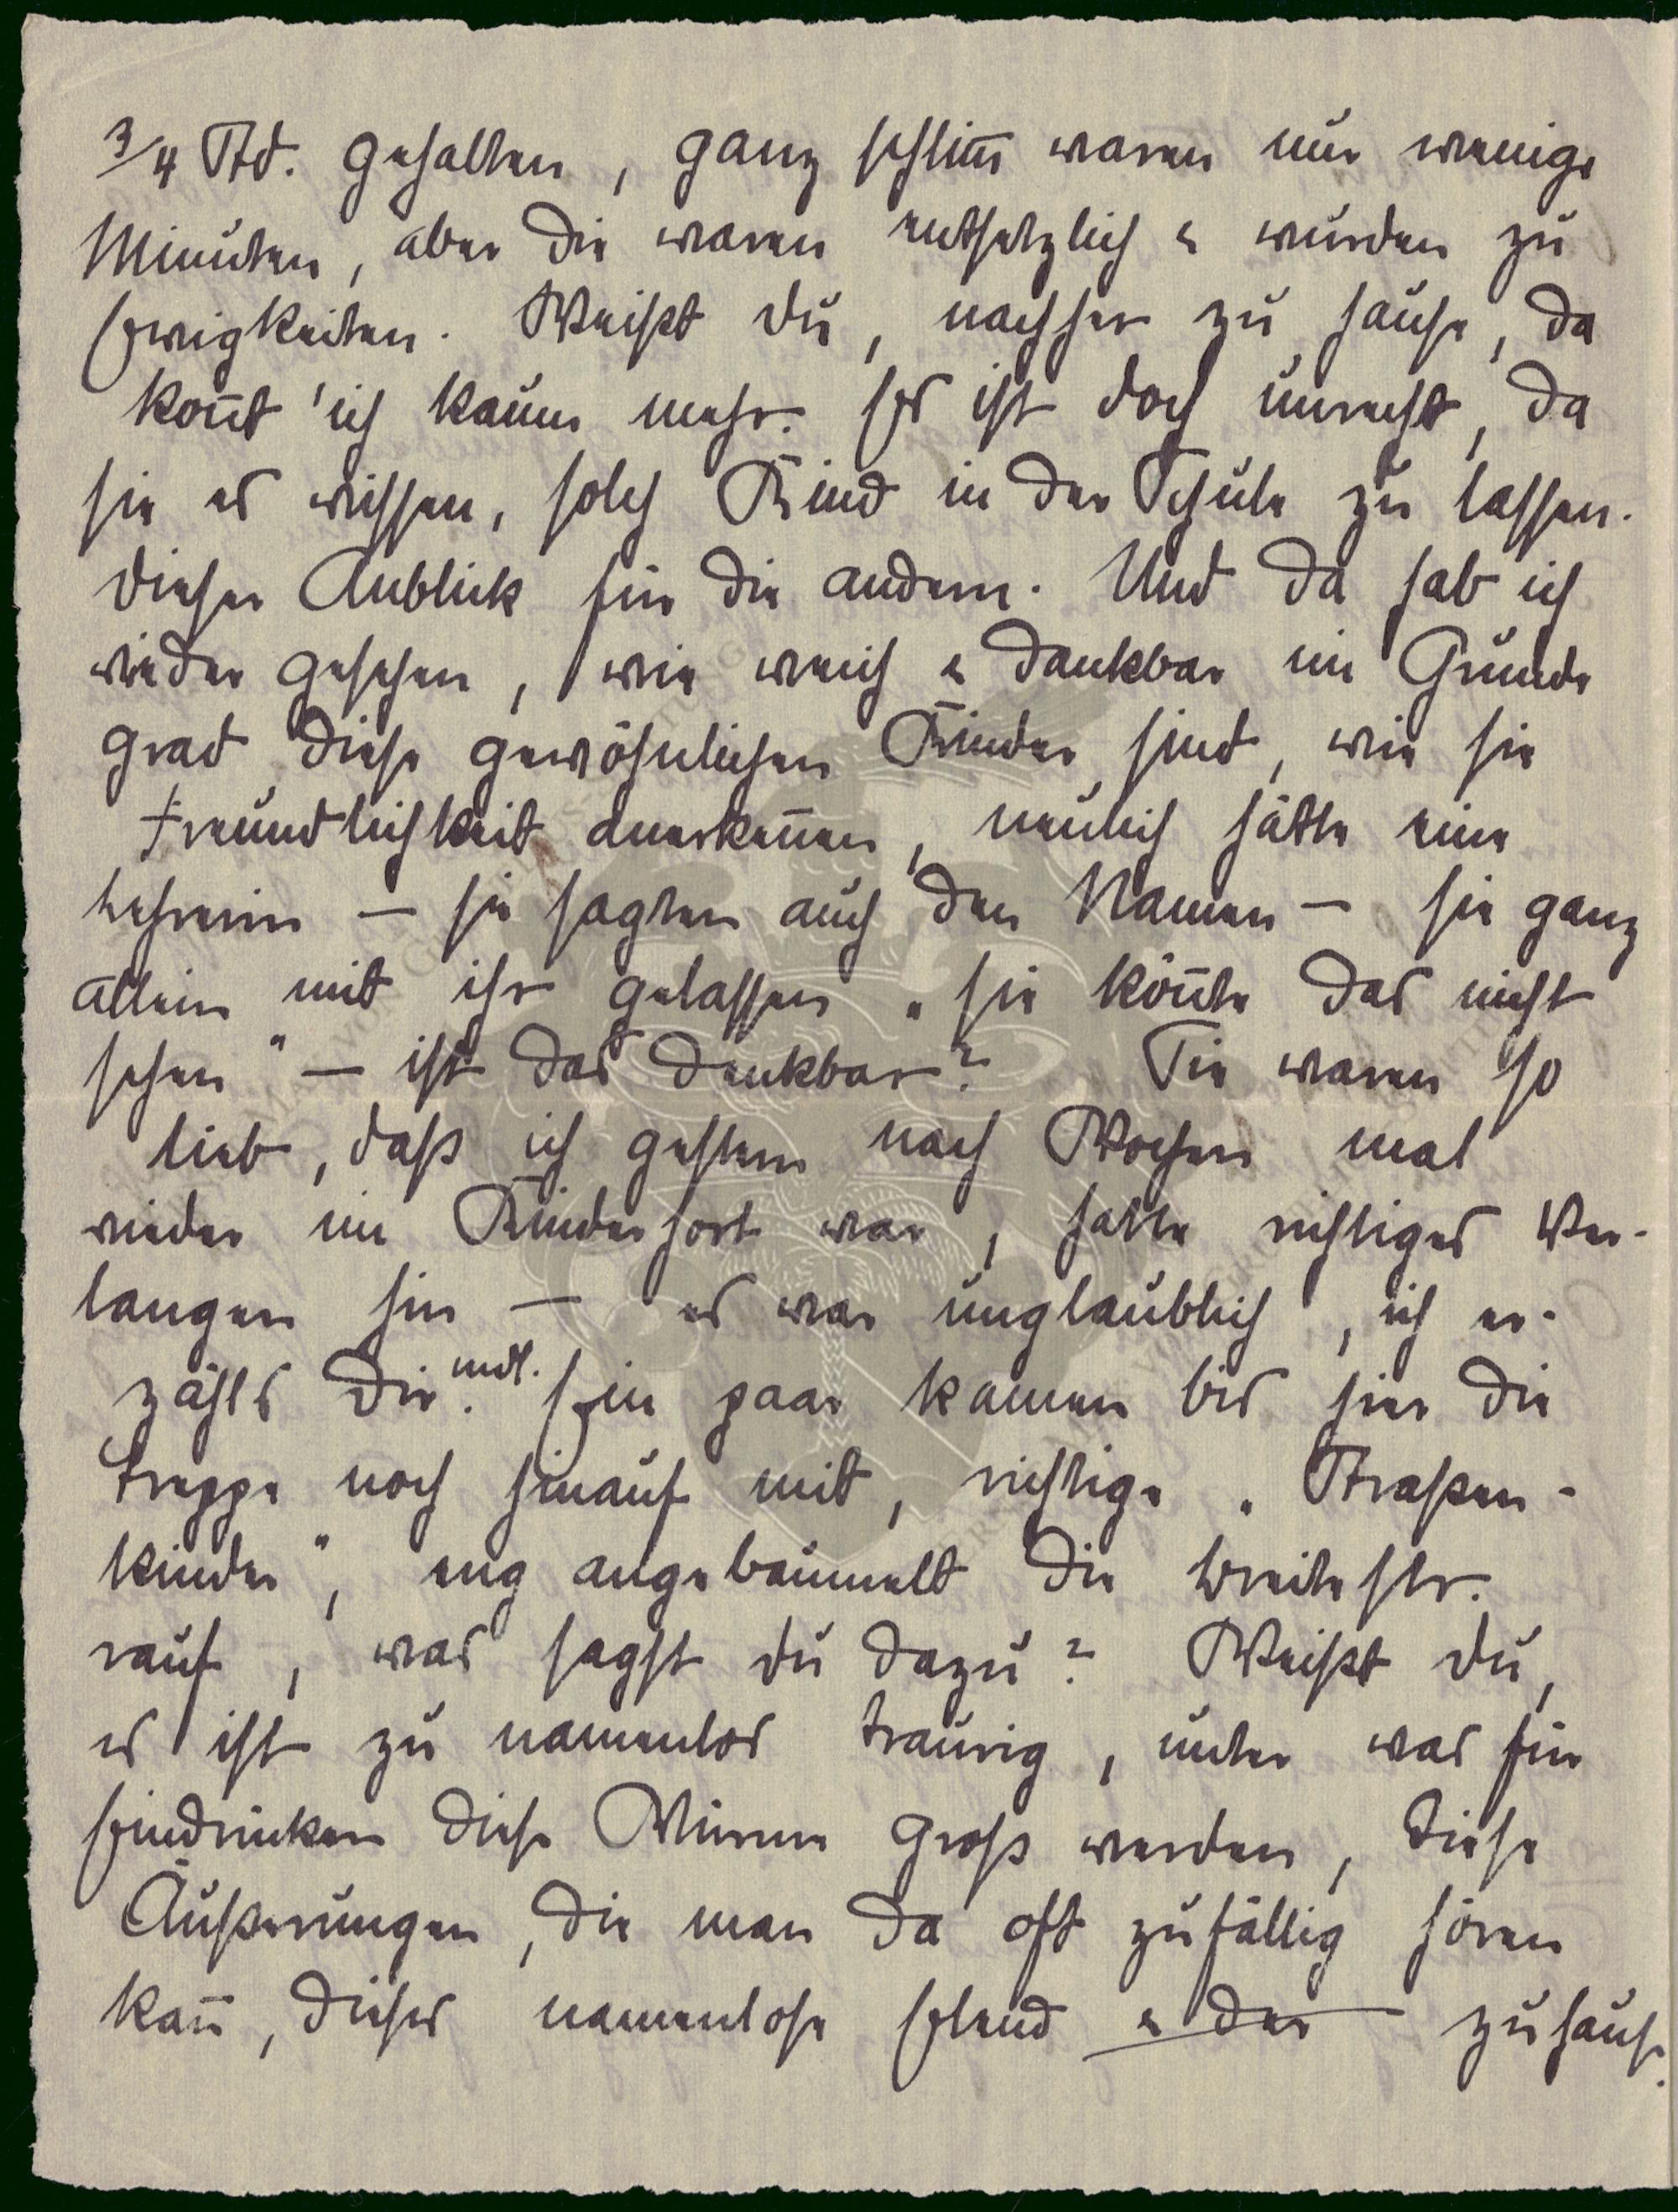 3/4 Std. gehalten, ganz schlim̅ waren nur wenige
Minuten, aber die waren entsetzlich & wurden zu
Ewigkeiten. Weißt du, nachher zu hause, da
kon̅t' ich kaum mehr. Es ist doch unrecht, da
sie es wissen, solch Kind in der Schule zu lassen.
dieser Anblick für die andern. Und da hab ich
wieder gesehen, wie weich & dankbar im Grunde
grad diese gewöhnlichen Kinder sind, wie sie
Freundlichkeit anerken̅en, neulich hätte eine
Lehrerin – sie sagten auch den Namen – sie ganz
allein mit ihr gelassen „sie kön̅te das nicht
sehen" – ist das denkbar? Sie waren so
lieb, daß ich gestern nach Wochen mal
wieder im Kinderhort war, hatte richtiges Ver-
langen hin – es war unglaublich, ich er-
zähls Dir mdl. Ein paar kamen bis hier die
Treppe noch hinauf mit, richtige „Straßen-
kinder", eng angebaumelt die Breitestr.
rauf, was sagst du dazu? Weißt du,
es ist zu namenlos traurig, unter was für
Eindrücken diese Würmer groß werden, diese
Äußerungen, die man da oft zufällig hören
kan̅, dieses namenlose Elend & der zuhause.